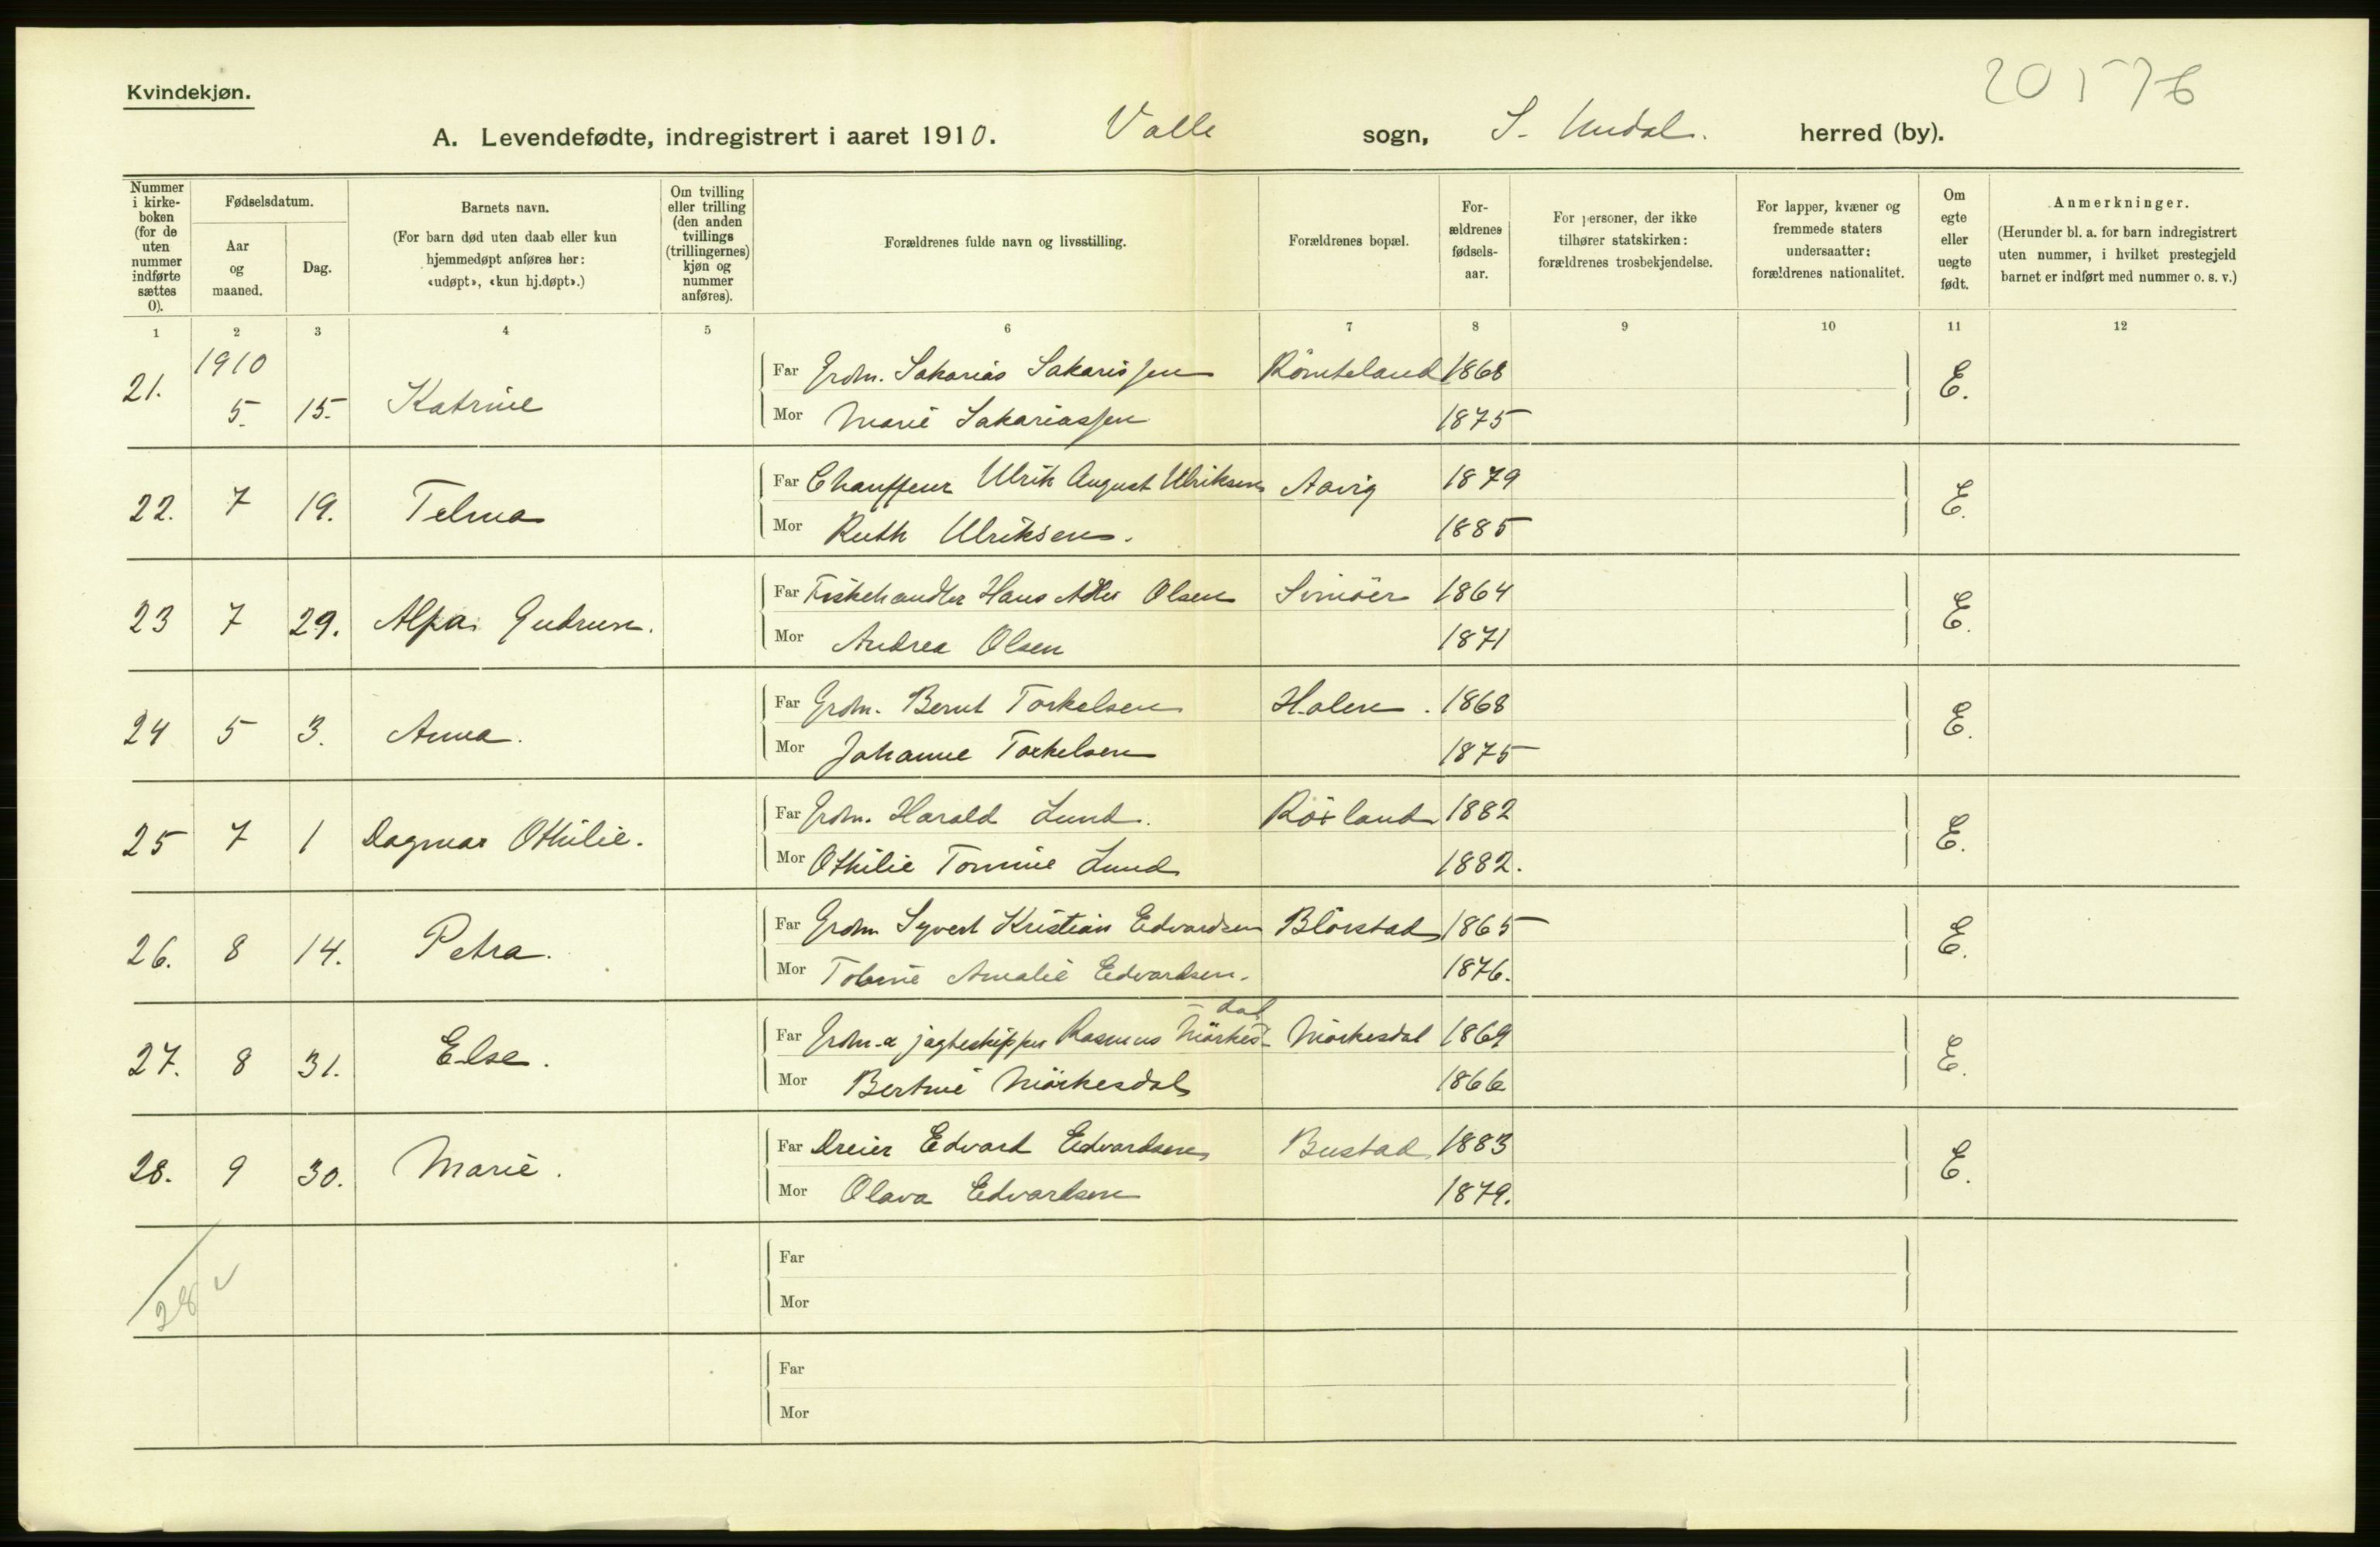 20576
Kvindekjøn.
A. Levendefødte, indregistrert i aaret 1910. Valle sogn, S. Undal. herred (by).
Nummer i kirkeboken (for de uten nummer indførte sættes 0).
Fødselsdatum.
Aar og maaned.
Dag.
Barnets navn.
(For barn død uten daab eller kun hjemmedøpt anføres her: «udøpt», «kun hj.døpt».)
Om tvilling eller trilling (den anden tvillings (trillingernes) kjøn og nummer anføres).
Forældrenes fulde navn og livsstilling.
Forældrenes bopæl.
Forældrenes fødselsaar.
For personer, der ikke tilhører statskirken: forældrenes trosbekjendelse.
For lapper, kvæner og fremmede staters undersaatter: forældrenes nationalitet.
Om egte eller uegte født.
Anmerkninger.
(Herunder bl. a. for barn indregistrert uten nummer, i hvilket prestegjeld barnet er indført med nummer o. s. v.)
1 2 3 4 5 6 7 8 9 10 11 12
1910
21. 5. 15. Katrine Far Grdm. Sakarias Sakarissen Römteland 1868 E.
Mor Marie Sakariassen 1875
22. 7 19. Telma Far Chauffeur Ulrik August Ulriksen Aavig 1879 E.
Mor Ruth Ulriksen. 1885
23 7 29. Gudrun. Far Fiskehandler Hans Adler Olsen Svinöer 1864 E.
Mor Andrea Olsen 1871
24 5 3. Anna. Far Grdm. Bernt Torkelsen Halen. 1868 E.
Mor Johanne Torkelsen 1875
25 7 1 Dagmar Othilie. Far Grdm. Harald Lund. Röiland 1882 E.
Mor Othilie Tomine Lund 1882.
26. 8 14. Petra. Far Grdm Syvert Kristian Edvardsen Blörstad 1865 E.
Mor Tobine Amalie Edvardsen. 1876.
27. 8 31. Else. Far Grdm. & jagteskipper Rasmus Mörkesdal Mörkesdal 1869 E.
Mor Bertine Mörkesdal 1866
28. 9 30. Marie. Far Dreier Edvard Edvardsen Bustad 1883 E.
Mor Olava Edvardsen 1879.
28 Far
Mor
Far
Mor